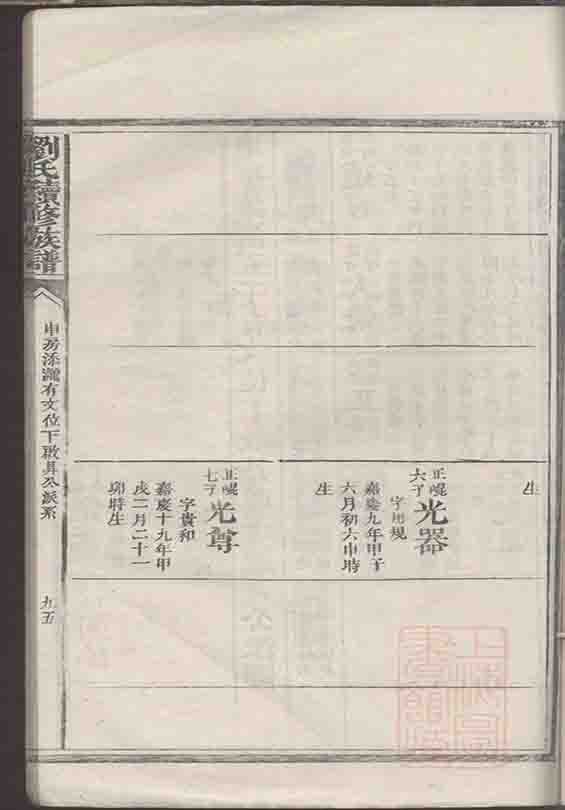 生
正崐
六子
光器
字用規
嘉慶九年甲子
六月初六申時
生
正崐
七子
光尊
字貴和
嘉慶十九年甲
戌二月二十一
卯時生
劉氏續修族譜
申房添瀾有文位下啟具公派系
九五